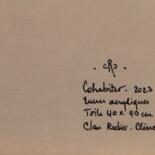 R
Cohabiter. 2023
Encres acryliques
Toile 40 x 40 cm
Clau Rodier - Clémen